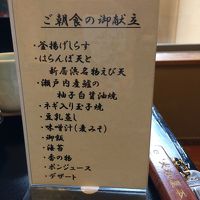 ご朝食の御献立
・釜揚げしらす
・はらんぼ天と
新居浜名物えび天
・瀬戸内産鰆の
柚子白醤油焼
・ネギ入り玉子焼
・豆乳蒸し
・味噌汁(麦みそ)
・御飯
・海苔
・香の物
・ポンジュース
・デザート